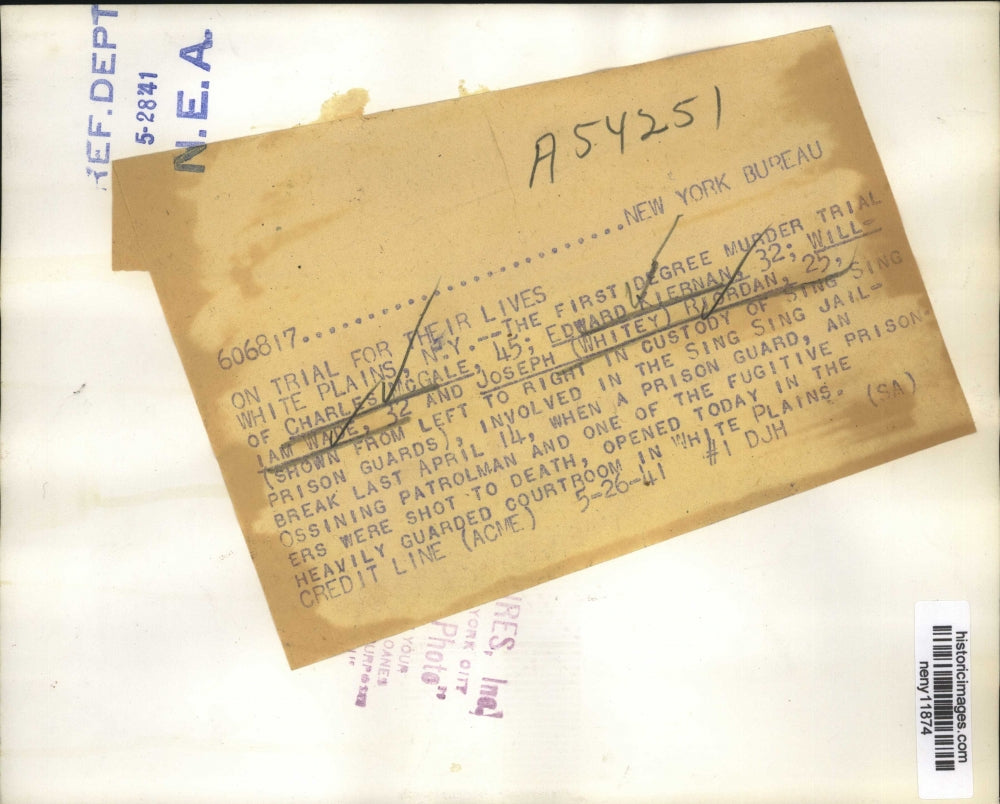 REF.DEPT
5-28-41
N.E.A.
A54251
606817..............................NEW YORK BUREAU
ON TRIAL FOR THEIR LIVES
WHITE PLAINS, N.Y.---THE FIRST DEGREE MURDER TRIAL
OF CHARLES GALE, 45; EDWARD KIERNAN, 32; WILL-
IAM WADE, 32 AND JOSEPH (WHITEY) RIORDAN, 25,
(SHOWN FROM LEFT TO RIGHT IN CUSTODY OF SING SING
PRISON GUARDS), INVOLVED IN THE SING SING JAIL-
BREAK LAST APRIL 14, WHEN A PRISON GUARD, AN
OSSINING PATROLMAN AND ONE OF THE FUGITIVE PRISON-
ERS WERE SHOT TO DEATH, OPENED TODAY IN THE
HEAVILY GUARDED COURTROOM IN WHITE PLAINS.
CREDIT LINE (ACME) 5-26-41 #1 DJH (SA)
URES, Inc
YORK CITY
Photo"
YOUR
historicimages.com
neny11874